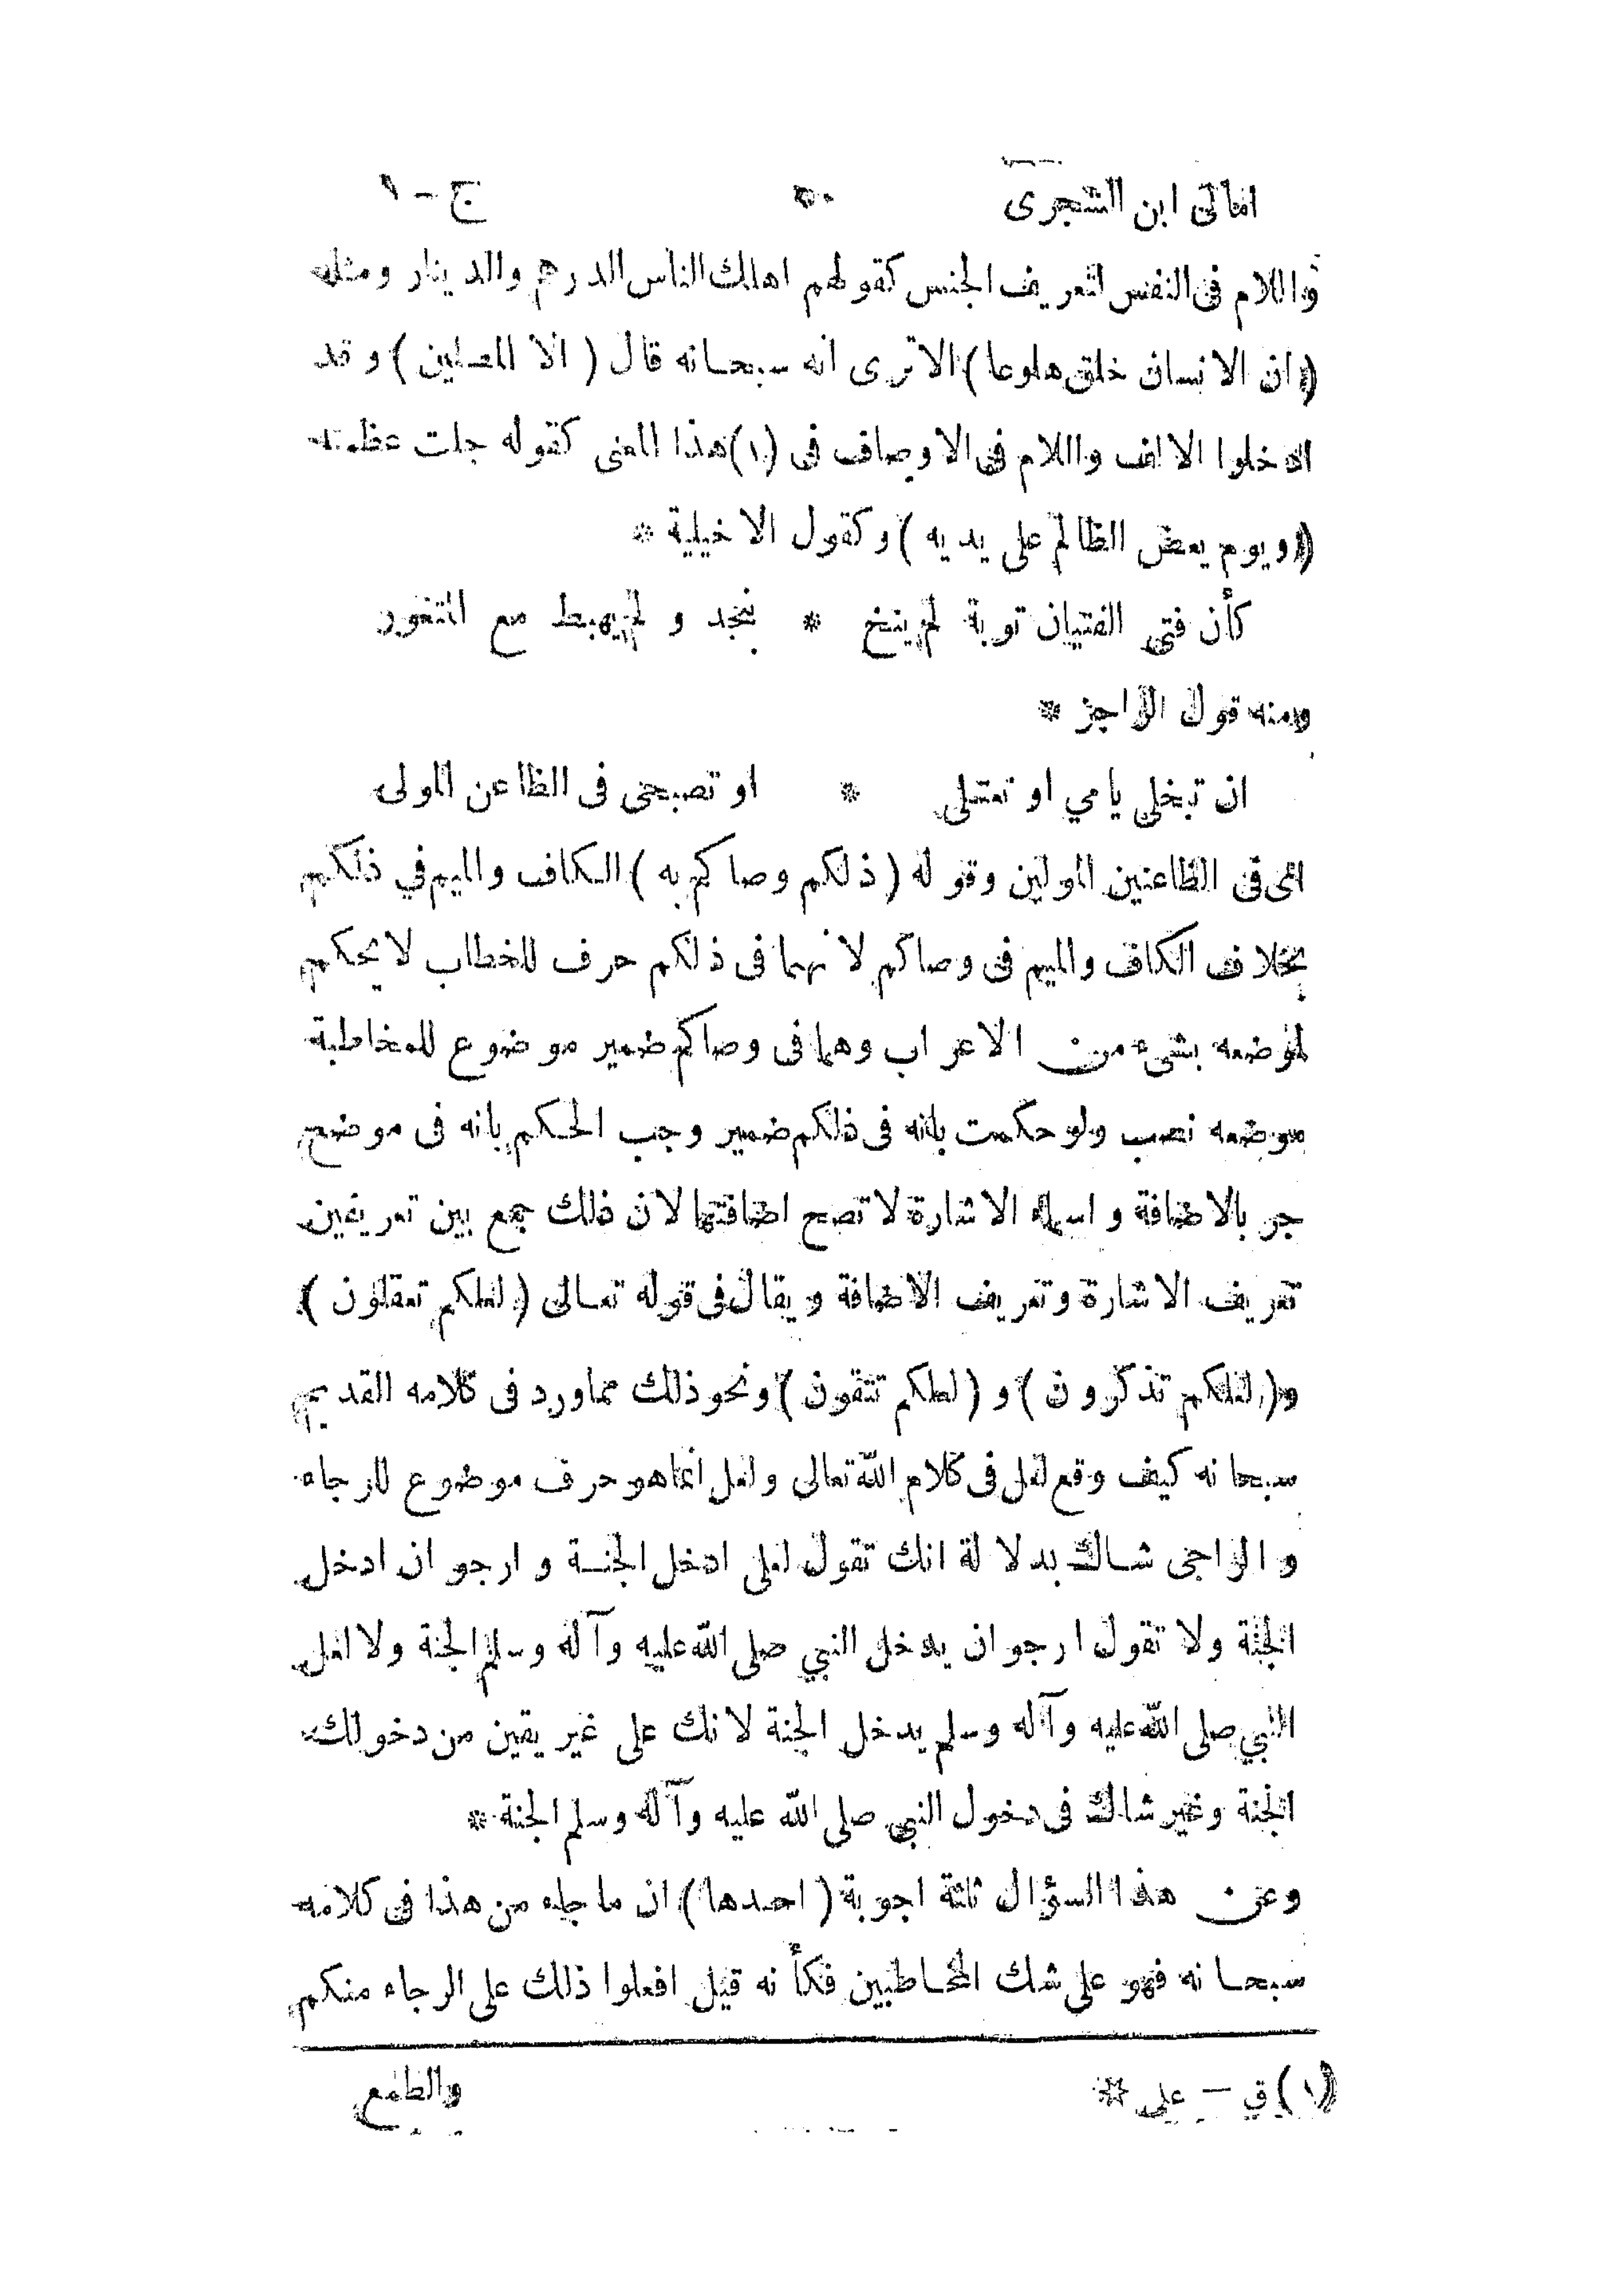 امالى ابن الشجرى ٥٠ ج - ١
واللام فى النفس لتعريف الجنس كقولهم اهلك الناس الدرهم والدينار ومثله
(ان الانسان خلق هلوعا) الا ترى انه سبحانه قال (الا المصلين) وقد
ادخلوا الالف واللام فى الاوصاف فى (١) هذا المعنى كقوله جلت عظمته
(ويوم يعض الظالم على يديه) وكقول الاخيلية *
كأن فتى الفتيان توبة لم ينخ * بنجد و لم يهبط مع المتغور
ومنه قول الراجز *
ان تبخلى يا مي او تعتلى * او تصبحى فى الظاعن المولى
اى فى الظاعنين المولين وقوله (ذلكم وصاكم به) الكاف والميم في ذلكم
بخلاف الكاف والميم فى وصاكم لانهما فى ذلكم حرف للخطاب لا يحكم
لموضعه بشىء من الاعراب وهما فى وصاكم ضمير موضوع للمخاطبة
موضعه نصب ولو حكمت بانه فى ذلكم ضمير وجب الحكم بانه فى موضع
جر بالاضافة و اسماء الاشارة لا تصح اضافتها لان ذلك جمع بين تعريفين
تعريف الاشارة وتعريف الاضافة ويقال فى قوله تعالى (لعلكم تعقلون)
و(لعلكم تذكرون) و (لعلكم تتقون) ونحو ذلك مما ورد فى كلامه القديم
سبحانه كيف وقع لعل فى كلام الله تعالى ولعل انما هو حرف موضوع للرجاء
و الراجى شاك بدلالة انك تقول لعلى ادخل الجنة و ارجو ان ادخل
الجنة ولا تقول ارجو ان يدخل النبي صلى الله عليه وآله وسلم الجنة ولا لعل
النبي صلى الله عليه وآله وسلم يدخل الجنة لانك على غير يقين من دخولك
الجنة وغير شاك فى دخول النبي صلى الله عليه وآله وسلم الجنة *
وعن هذا السؤال ثلثة اجوبة (احدها) ان ما جاء من هذا فى كلامه
سبحانه فهو على شك المخاطبين فكأنه قيل افعلوا ذلك على الرجاء منكم
(١) ق - على *
والطمع